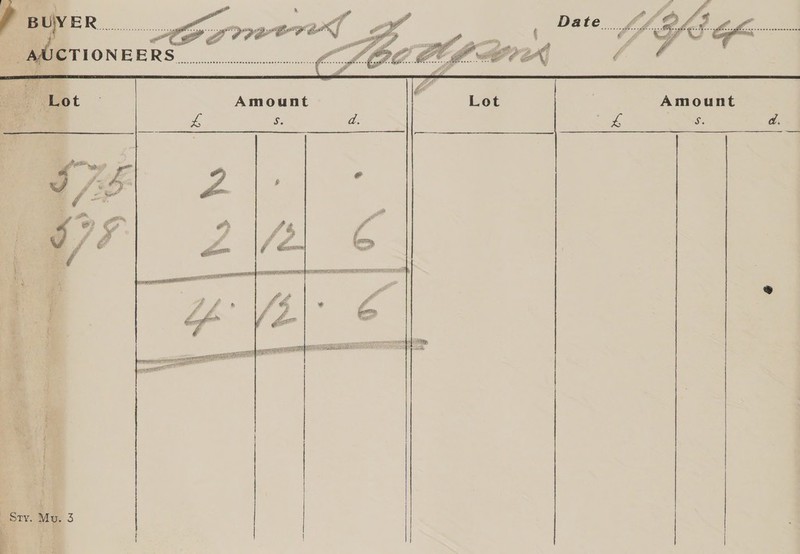 BUYER Comins
Date 1/3/34
AUCTIONEERS Hodgson's
Lot Amount Lot Amount
£ s. d. £ s. d.
575 2 . .
578 2 12 6
4 . 12 . 6
STY. MU. 3